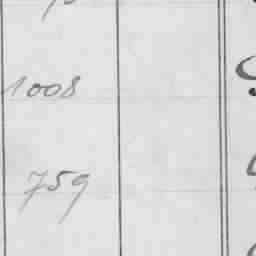 1008
759